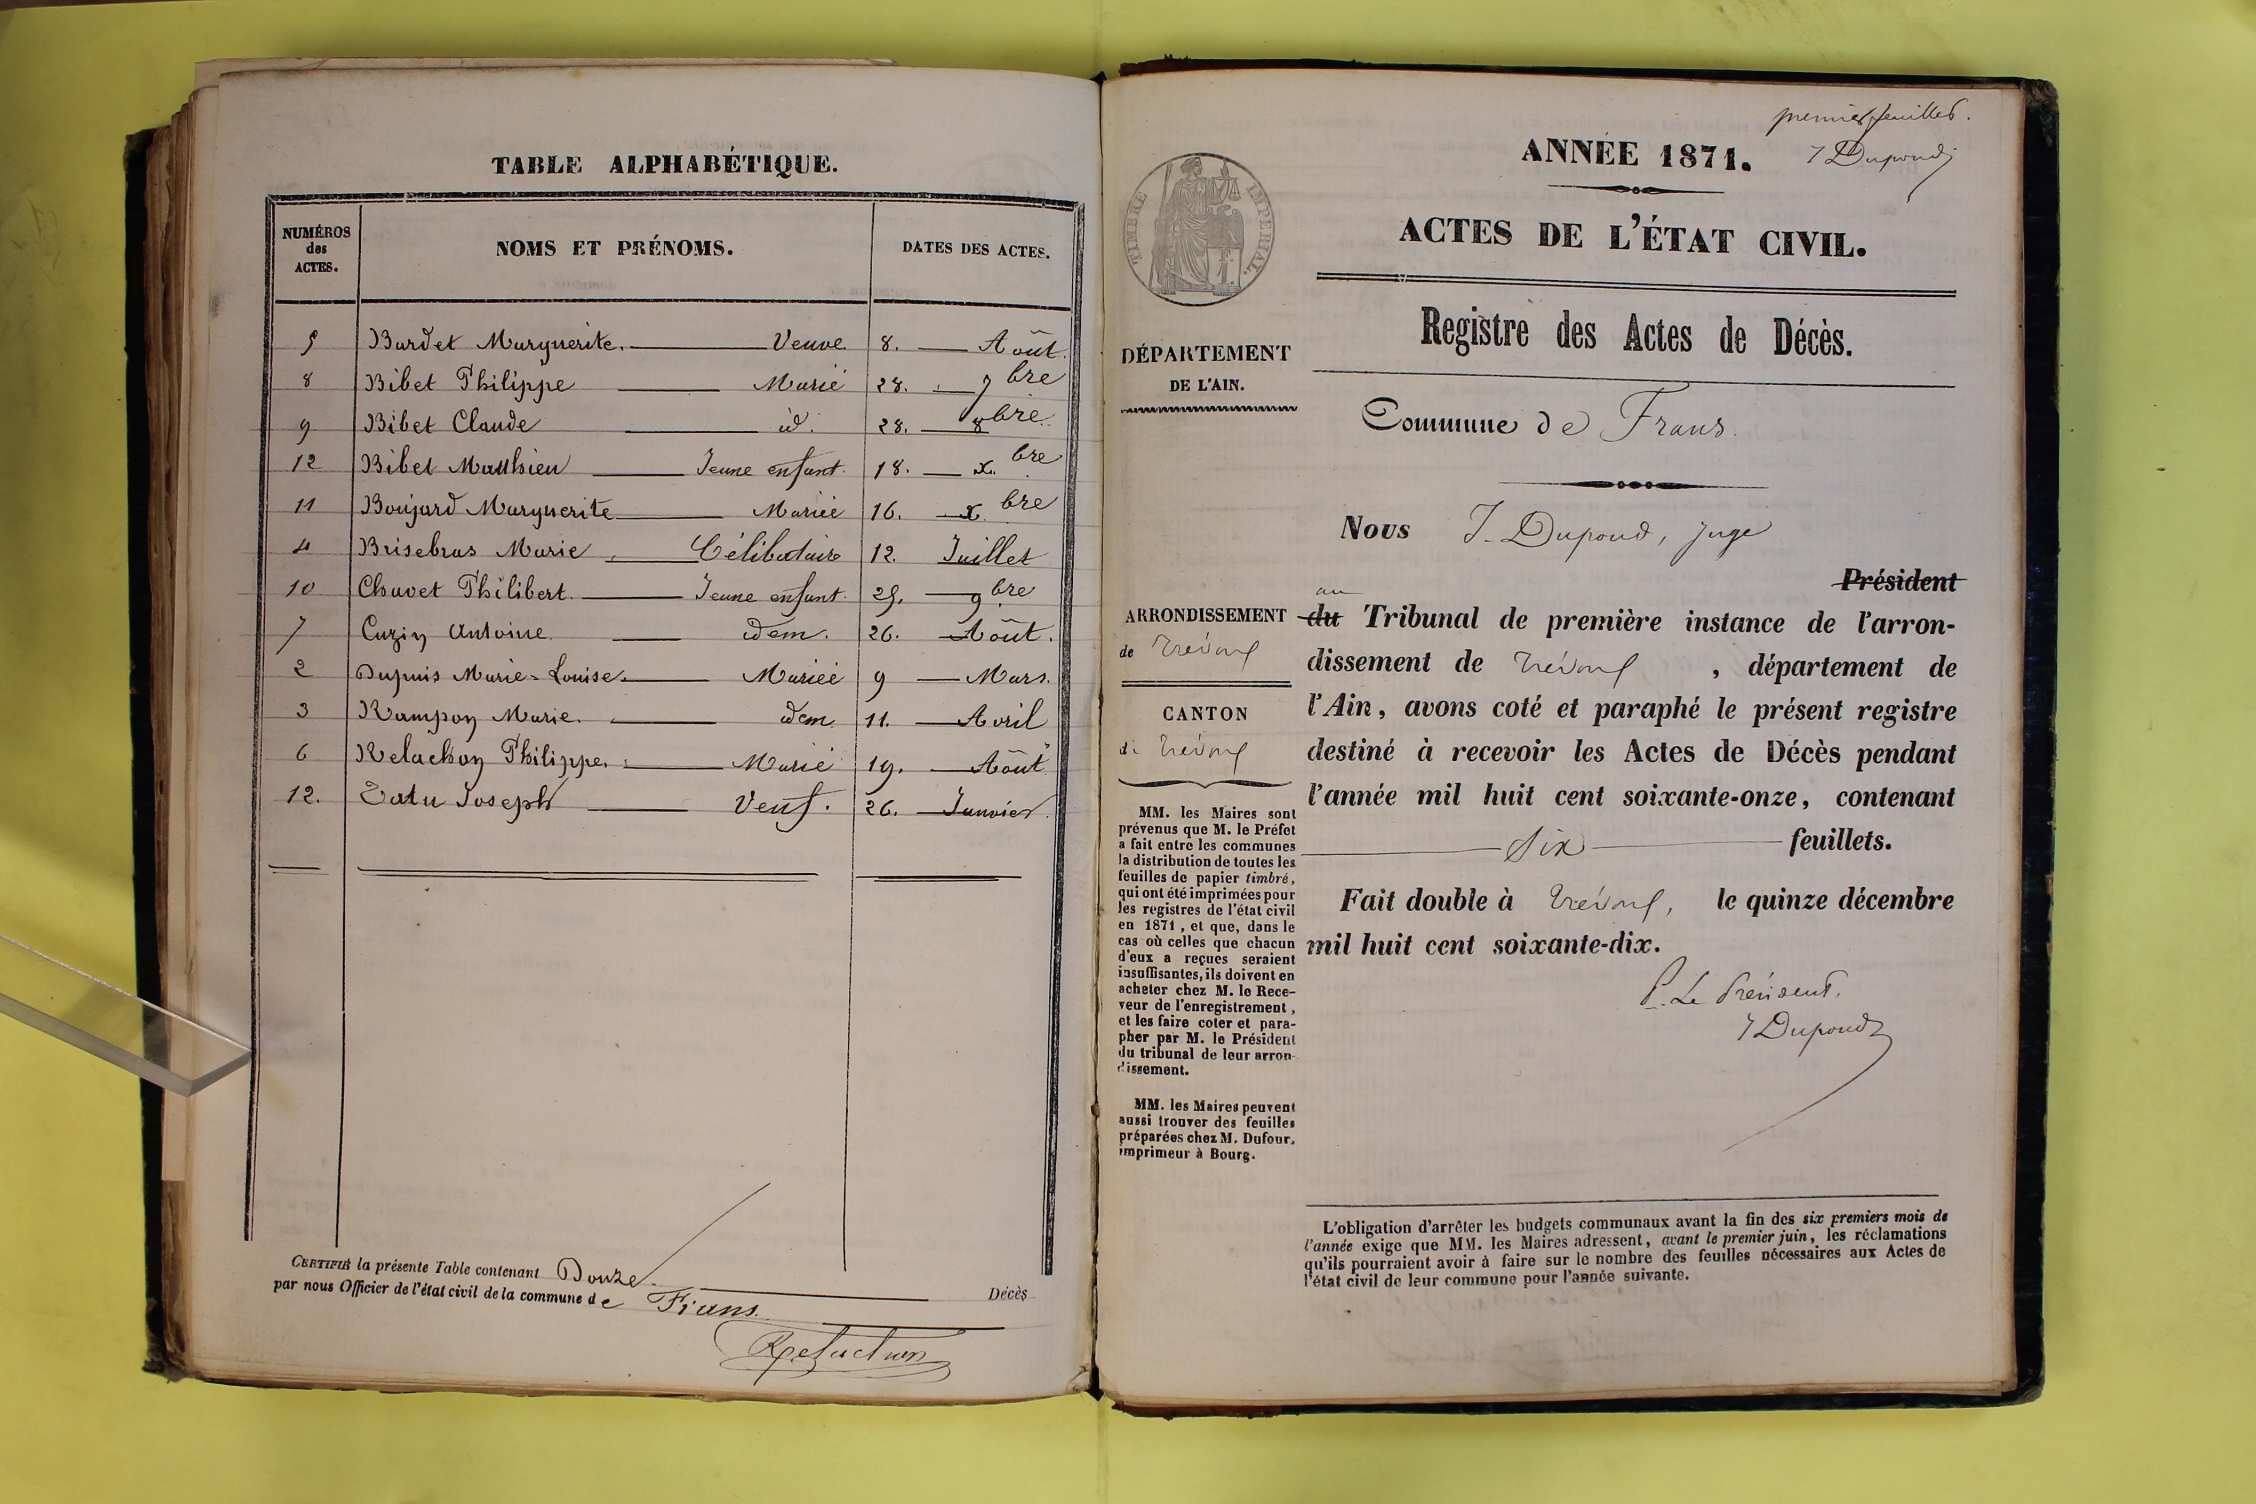 TABLE ALPHABÉTIQUE.
NUMÉROS des ACTES. NOMS ET PRÉNOMS. DATES DES ACTES.
5 Bardet Marguerite. Veuve 8. Août.
8 Bibet Philippe Marié 28. 7bre
9 Bibet Claude id. 28. 8bre
12 Bibet Matthieu Jeune enfant. 18. x.bre
11 Boujard Marguerite Mariée 16. x.bre
4 Brisebras Marie Célibataire 12. Juillet
10 Chavet Philibert. Jeune enfant. 25. 9bre
7 Cuzin Antoine idem. 26. Août.
2 Dupuis Marie-Louise. Mariée 9 Mars.
3 Rampon Marie. idem 11. Avril
6 Relachon Philippe. Marié 19. Août
12. Tatu Joseph Veuf. 26. Janvier.
CERTIFIÉ la présente Table contenant Douze. Décès
par nous Officier de l'état civil de la commune de Frans.
Relachon
premier feuillet.
J Dupond
ANNÉE 1871.
TIMBRE IMPÉRIAL.
ACTES DE L'ÉTAT CIVIL.
Registre des Actes de Décès.
DÉPARTEMENT
DE L'AIN.
Commune de Frans.
Nous J. Dupond, juge
Président
au
ARRONDISSEMENT
de Trévoux
CANTON
de Trévoux
du Tribunal de première instance de l'arron-
dissement de Trévoux, département de
l'Ain, avons coté et paraphé le présent registre
destiné à recevoir les Actes de Décès pendant
l'année mil huit cent soixante-onze, contenant
six feuillets.
Fait double à Trévoux, le quinze décembre
mil huit cent soixante-dix.
P. Le Président.
J Dupond
MM. les Maires sont
prévenus que M. le Préfet
a fait entre les communes
la distribution de toutes les
feuilles de papier timbré,
qui ont été imprimées pour
les registres de l'état civil
en 1871, et que, dans le
cas où celles que chacun
d'eux a reçues seraient
insuffisantes, ils doivent en
acheter chez M. le Rece-
veur de l'enregistrement,
et les faire coter et para-
pher par M. le Président
du tribunal de leur arron-
dissement.
MM. les Maires peuvent
aussi trouver des feuilles
préparées chez M. Dufour,
imprimeur à Bourg.
L'obligation d'arrêter les budgets communaux avant la fin des six premiers mois de
l'année exige que MM. les Maires adressent, avant le premier juin, les réclamations
qu'ils pourraient avoir à faire sur le nombre des feuilles nécessaires aux Actes de
l'état civil de leur commune pour l'année suivante.